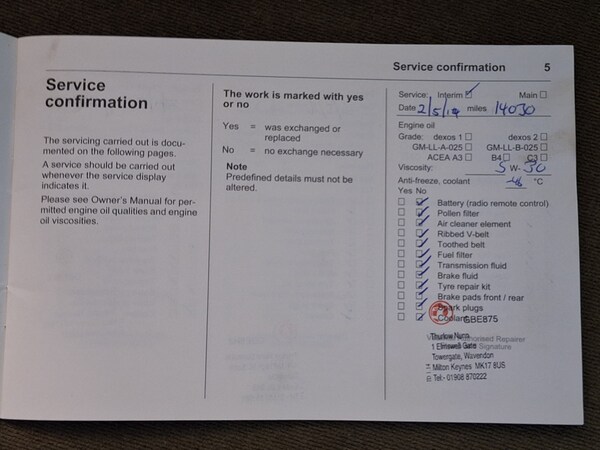 Service confirmation 5
Service
confirmation
The servicing carried out is docu-
mented on the following pages.
A service should be carried out
whenever the service display
indicates it.
Please see Owner's Manual for per-
mitted engine oil qualities and engine
oil viscosities.
The work is marked with yes
or no
Yes = was exchanged or
replaced
No = no exchange necessary
Note
Predefined details must not be
altered.
Service: Interim Main
Date 2/5/19 miles 14030
Engine oil
Grade: dexos 1 dexos 2
GM-LL-A-025 GM-LL-B-025
ACEA A3 B4 C3
Viscosity: 5 W- 30
Anti-freeze, coolant °C
Yes No
Battery (radio remote control)
Pollen filter
Air cleaner element
Ribbed V-belt
Toothed belt
Fuel filter
Transmission fluid
Brake fluid
Tyre repair kit
Brake pads front / rear
Spark plugs
Coolant GBE875
Authorised Repairer
Thurlow Nunn
1 Elmswell Gate Signature
Towergate, Wavendon
Milton Keynes MK17 8US
Tel:- 01908 870222